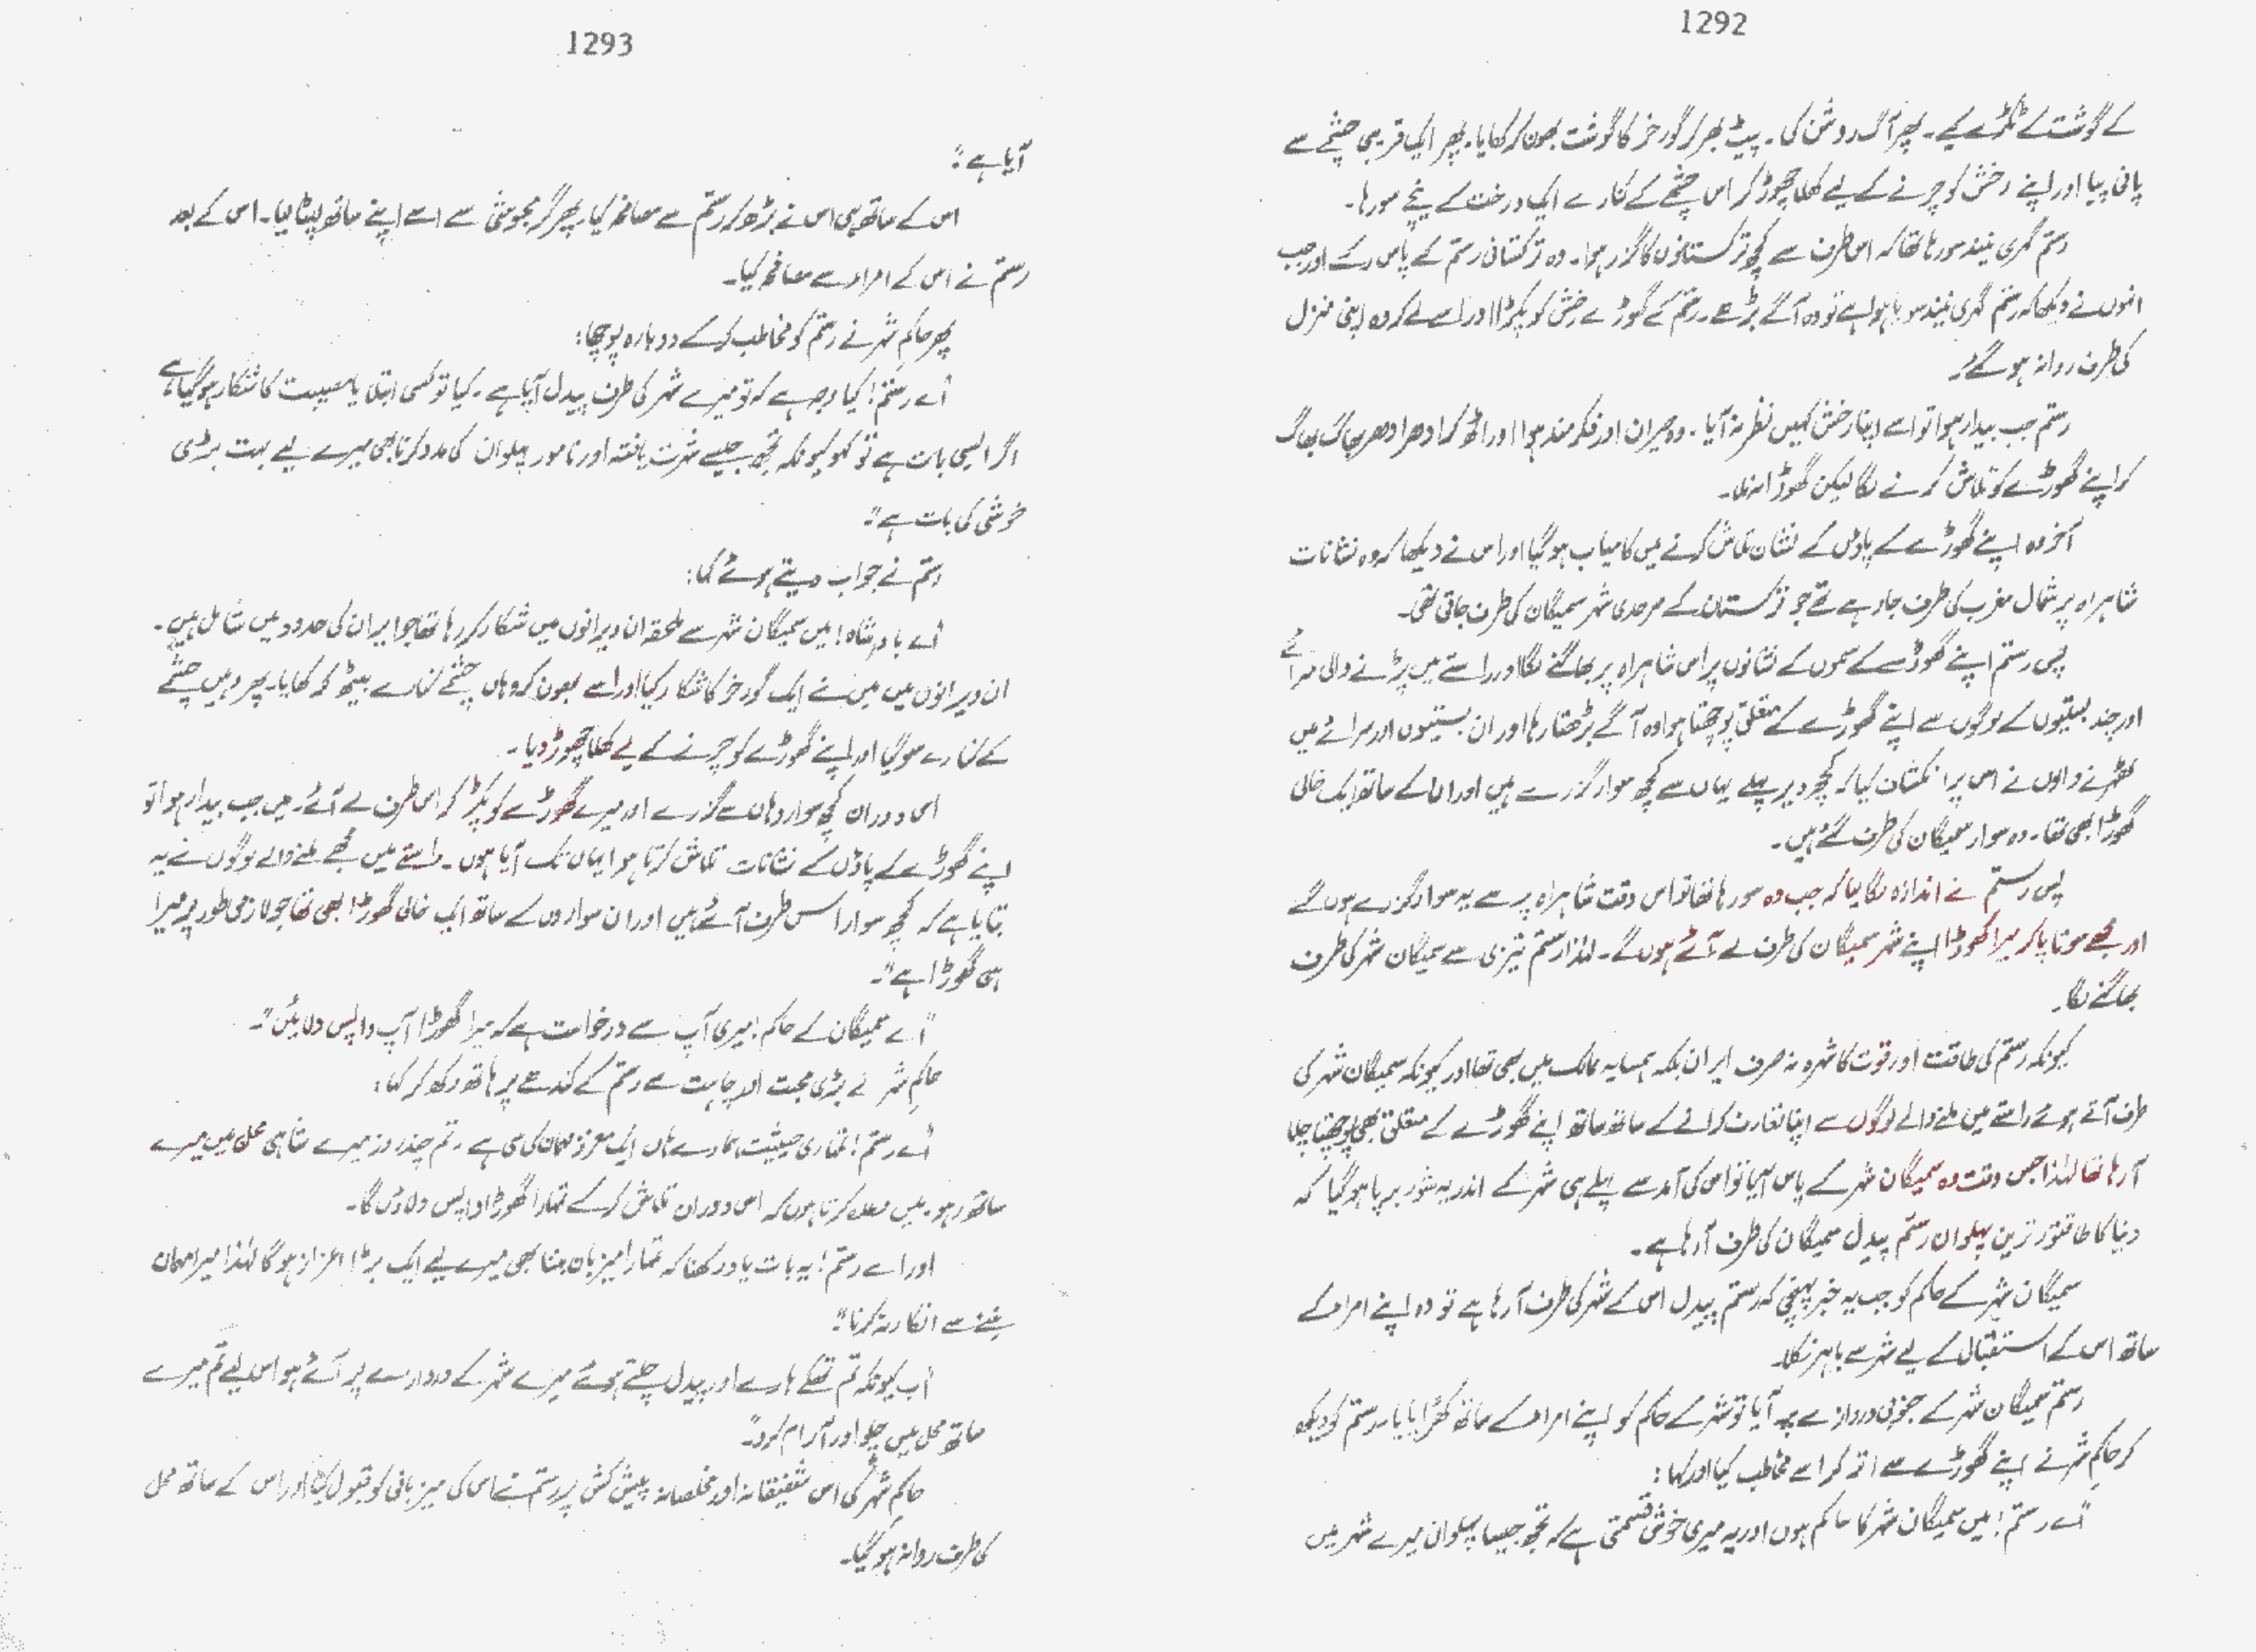 1292
کے گوشت کے ٹکڑے کیے۔ پھر آگ روشن کی۔ پیٹ بھر کر گورخر کا گوشت بھون کر کھایا۔ پھر ایک قریبی چشمے سے
پانی پیا اور اپنے رخش کو چرنے کے لیے کھلا چھوڑ کر اس چشمے کے کنارے ایک درخت کے نیچے سو رہا۔
رستم گہری نیند سو رہا تھا کہ اس طرف سے کچھ ترکستانوں کا گزر ہوا۔ وہ ترکستانی رستم کے پاس رکے اور جب
انہوں نے دیکھا کہ رستم گہری نیند سویا ہوا ہے تو وہ آگے بڑھے۔ رستم کے گھوڑے رخش کو پکڑا اور اسے لے کر وہ اپنی منزل
کی طرف روانہ ہو گئے۔
رستم جب بیدار ہوا تو اسے اپنا رخش کہیں نظر نہ آیا۔ وہ حیران اور فکر مند ہوا اور اٹھ کر ادھر ادھر بھاگ بھاگ
کر اپنے گھوڑے کو تلاش کرنے لگا لیکن گھوڑا نہ ملا۔
آخر وہ اپنے گھوڑے کے پاؤں کے نشان تلاش کرنے میں کامیاب ہو گیا اور اس نے دیکھا کہ وہ نشانات
شاہراہ پر شمال مغرب کی طرف جا رہے تھے جو ترکستان کے سرحدی شہر سمیگان کی طرف جاتی تھی۔
پس رستم اپنے گھوڑے کے سموں کے نشانوں پر اس شاہراہ پر بھاگنے لگا اور راستے میں پڑنے والی سرائے
اور چند بستیوں کے لوگوں سے اپنے گھوڑے کے متعلق پوچھتا ہوا وہ آگے بڑھتا رہا اور ان بستیوں اور سرائے میں
ٹھہرنے والوں نے اس پر انکشاف کیا کہ کچھ دیر پہلے یہاں سے کچھ سوار گزرے ہیں اور ان کے ساتھ ایک خالی
گھوڑا بھی تھا۔ وہ سوار سمیگان کی طرف گئے ہیں۔
پس رستم نے اندازہ لگا لیا کہ جب وہ سو رہا تھا تو اس وقت شاہراہ پر سے یہ سوار گزرے ہوں گے
اور مجھے سوتا پا کر میرا گھوڑا اپنے شہر سمیگان کی طرف لے آئے ہوں گے۔ لہٰذا رستم تیزی سے سمیگان شہر کی طرف
بھاگنے لگا۔
کیونکہ رستم کی طاقت اور قوت کا شہرہ نہ صرف ایران بلکہ ہمسایہ ممالک میں بھی تھا اور کیونکہ سمیگان شہر کی
طرف آتے ہوئے راستے میں ملنے والے لوگوں سے اپنا تعارف کرانے کے ساتھ ساتھ اپنے گھوڑے کے متعلق بھی پوچھتا چلا
آ رہا تھا لہٰذا جس وقت وہ سمیگان شہر کے پاس آیا تو اس کی آمد سے پہلے ہی شہر کے اندر یہ شور برپا ہو گیا کہ
دنیا کا طاقتور ترین پہلوان رستم پیدل سمیگان کی طرف آ رہا ہے۔
سمیگان شہر کے حاکم کو جب یہ خبر پہنچی کہ رستم پیدل اس کے شہر کی طرف آ رہا ہے تو وہ اپنے امراء کے
ساتھ اس کے استقبال کے لیے شہر سے باہر نکلا۔
رستم سمیگان شہر کے جنوبی دروازے پر آیا تو شہر کے حاکم کو اپنے امراء کے ساتھ کھڑا پایا۔ رستم کو دیکھ
کر حاکم شہر نے اپنے گھوڑے سے اتر کر اسے مخاطب کیا اور کہا:
"اے رستم! میں سمیگان شہر کا حاکم ہوں اور یہ میری خوش قسمتی ہے کہ تجھ جیسا پہلوان میرے شہر میں
1293
آیا ہے"۔
اس کے ساتھ ہی اس نے بڑھ کر رستم سے مصافحہ کیا۔ پھر گرمجوشی سے اسے اپنے ساتھ لپٹا لیا۔ اس کے بعد
رستم نے اس کے امراء سے مصافحہ کیا۔
پھر حاکمِ شہر نے رستم کو مخاطب کر کے دوبارہ پوچھا:
"اے رستم! کیا وجہ ہے کہ تو میرے شہر کی طرف پیدل آیا ہے۔ کیا تو کسی ابتلا یا مصیبت کا شکار ہو گیا ہے
اگر ایسی بات ہے تو کہو کیونکہ تجھ جیسے شہرت یافتہ اور نامور پہلوان کی مدد کرنا بھی میرے لیے بہت بڑی
خوشی کی بات ہے"۔
رستم نے جواب دیتے ہوئے کہا:
"اے بادشاہ! میں سمیگان شہر سے ملحقہ ان ویرانوں میں شکار کر رہا تھا جو ایران کی حدود میں شامل ہیں۔
ان ویرانوں میں میں نے ایک گورخر کا شکار کیا اور اسے بھون کر وہاں چشمے کنارے بیٹھ کر کھایا۔ پھر وہیں چشمے
کے کنارے سو گیا اور اپنے گھوڑے کو چرنے کے لیے کھلا چھوڑ دیا۔
اسی دوران کچھ سوار وہاں سے گزرے اور میرے گھوڑے کو پکڑ کر اس طرف لے آئے۔ میں جب بیدار ہوا تو
اپنے گھوڑے کے پاؤں کے نشانات تلاش کرتا ہوا یہاں تک آیا ہوں۔ راستے میں مجھے ملنے والے لوگوں نے یہ
بتایا ہے کہ کچھ سوار اس طرف آئے ہیں اور ان سواروں کے ساتھ ایک خالی گھوڑا بھی تھا جو لازمی طور پر میرا
ہی گھوڑا ہے"۔
"اے سمیگان کے حاکم! میری آپ سے درخواست ہے کہ میرا گھوڑا آپ واپس دلائیں"۔
حاکمِ شہر نے بڑی محبت اور چاہت سے رستم کے کندھے پر ہاتھ رکھ کر کہا:
"اے رستم! تمہاری حیثیت ہمارے ہاں ایک معزز مہمان کی سی ہے۔ تم چند روز میرے شاہی محل میں میرے
ساتھ رہو۔ میں وعدہ کرتا ہوں کہ اس دوران تلاش کر کے تمہارا گھوڑا واپس دلاؤں گا۔
اور اے رستم! یہ بات یاد رکھنا کہ تمہارا میزبان بننا بھی میرے لیے ایک بڑا اعزاز ہو گا لہٰذا میرا مہمان
بننے سے انکار نہ کرنا"۔
"اب کیونکہ تم تھکے ہارے اور پیدل چلتے ہوئے میرے شہر کے دروازے پر آئے ہو اس لیے تم میرے
ساتھ محل میں چلو اور آرام کرو"۔
حاکمِ شہر کی اس شفیقانہ اور مخلصانہ پیش کش پر رستم نے اس کی میزبانی کو قبول کیا اور اس کے ساتھ محل
کی طرف روانہ ہو گیا۔